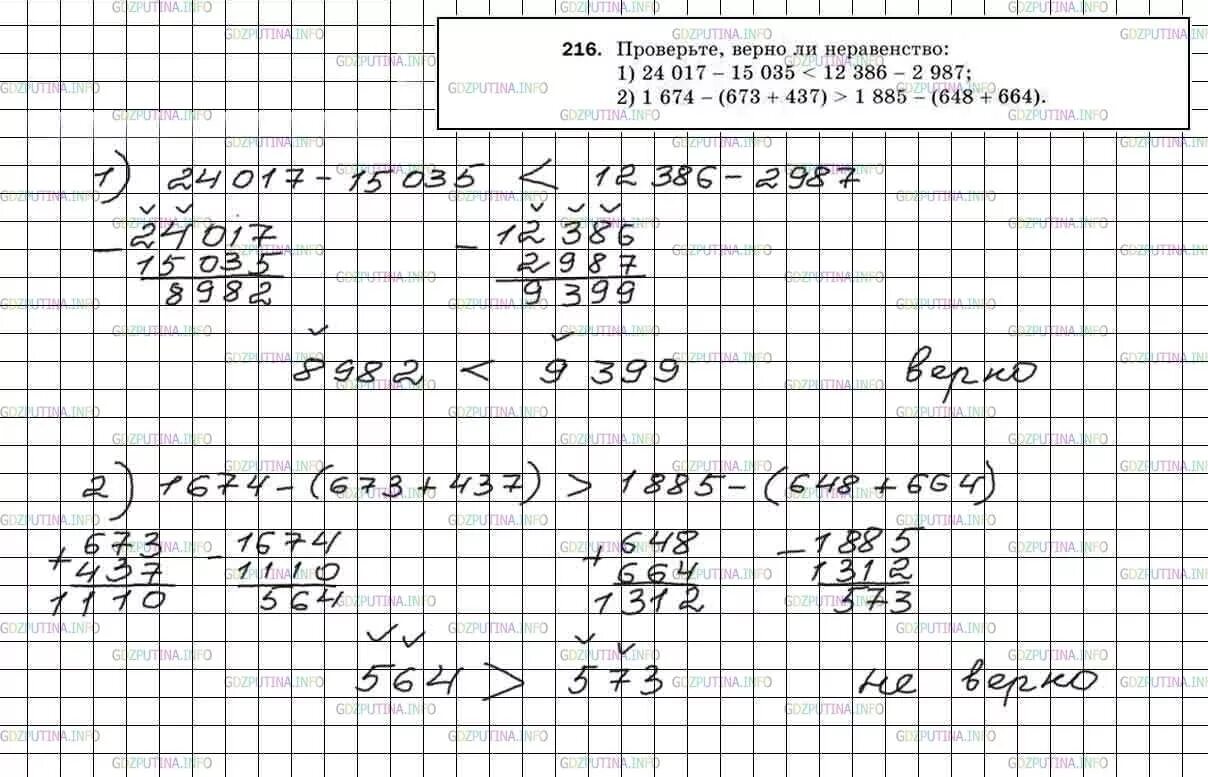 216. Проверьте, верно ли неравенство:
1) 24 017 – 15 035 < 12 386 – 2 987;
2) 1 674 – (673 + 437) > 1 885 – (648 + 664).
1) 24 017 - 15 035 < 12 386 - 2 987
- 24 017
15 035
8 982
- 12 386
2 987
9 399
8 982 < 9 399 верно
2) 1674 - (673 + 437) > 1885 - (648 + 664)
+ 673
437
1110
- 1674
1110
564
+ 648
664
1312
- 1885
1312
573
564 > 573 не верно
GDZPUTINA.INFO